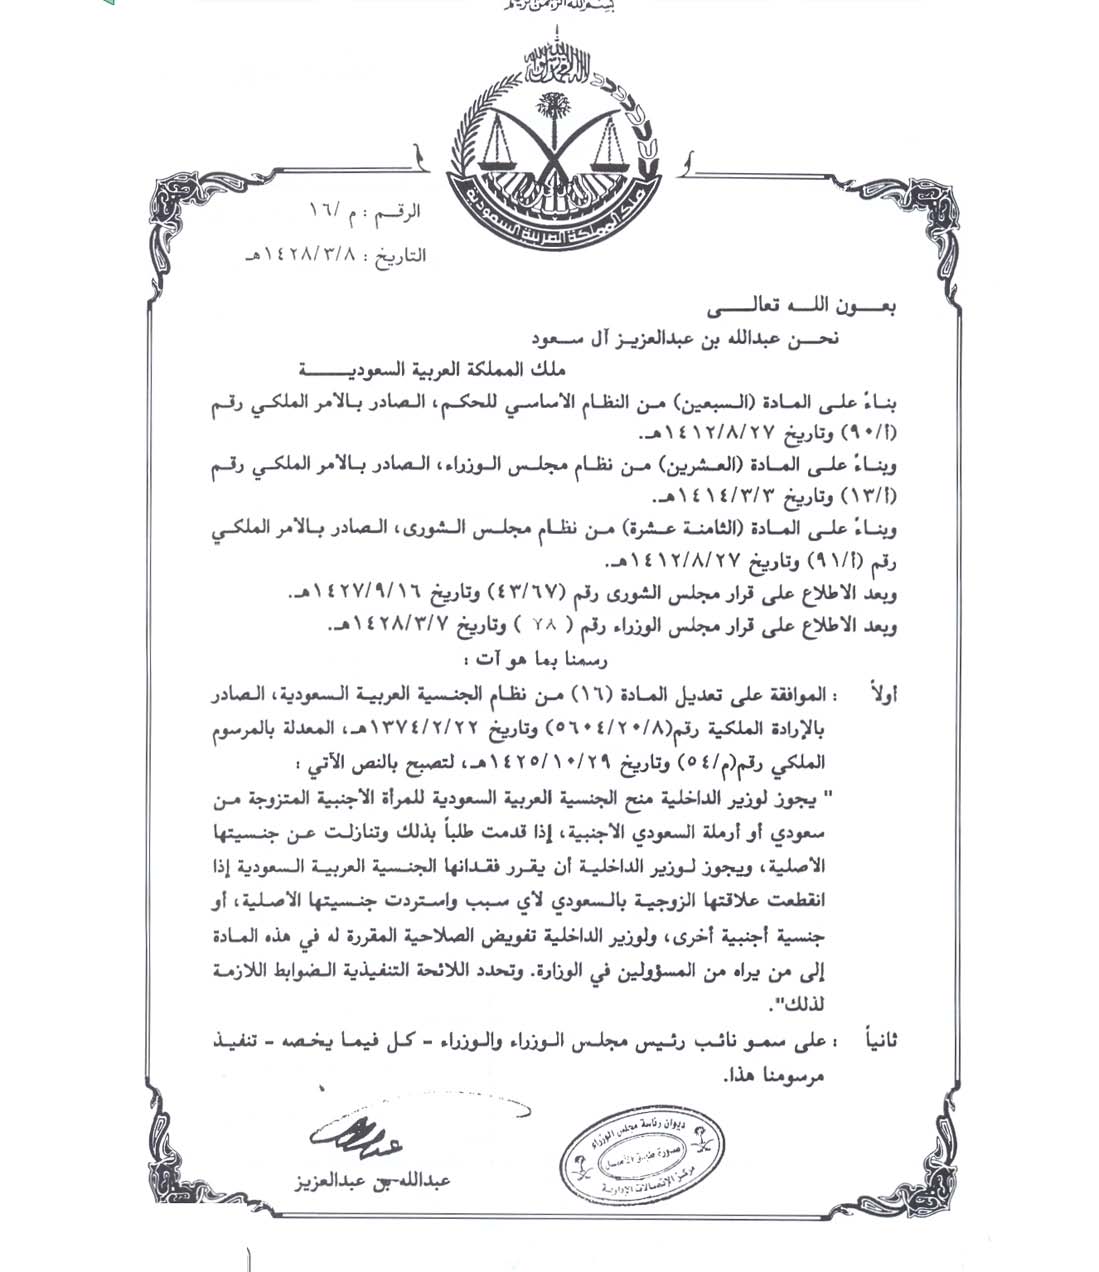 بسم الله الرحمن الرحيم
ملك المملكة العربية السعودية
الرقم : م /١٦
التاريخ : ١٤٢٨/٣/٨هـ
بعون الله تعالى
نحن عبدالله بن عبدالعزيز آل سعود
ملك المملكة العربية السعودية
بناءً على المادة (السبعين) من النظام الأساسي للحكم، الصادر بالأمر الملكي رقم
(أ/٩٠) وتاريخ ١٤١٢/٨/٢٧هـ.
وبناءً على المادة (العشرين) من نظام مجلس الوزراء، الصادر بالأمر الملكي رقم
(أ/١٣) وتاريخ ١٤١٤/٣/٣هـ.
وبناءً على المادة (الثامنة عشرة) من نظام مجلس الشورى، الصادر بالأمر الملكي
رقم (أ/٩١) وتاريخ ١٤١٢/٨/٢٧هـ.
وبعد الاطلاع على قرار مجلس الشورى رقم (٤٣/٦٧) وتاريخ ١٤٢٧/٩/١٦هـ.
وبعد الاطلاع على قرار مجلس الوزراء رقم ( ٧٨ ) وتاريخ ١٤٢٨/٣/٧هـ.
رسمنا بما هو آت :
أولاً : الموافقة على تعديل المادة (١٦) من نظام الجنسية العربية السعودية، الصادر
بالإرادة الملكية رقم(٥٦٠٤/٢٠/٨) وتاريخ ١٣٧٤/٢/٢٢هـ، المعدلة بالمرسوم
الملكي رقم(م/٥٤) وتاريخ ١٤٢٥/١٠/٢٩هـ، لتصبح بالنص الآتي :
" يجوز لوزير الداخلية منح الجنسية العربية السعودية للمرأة الأجنبية المتزوجة من
سعودي أو أرملة السعودي الأجنبية، إذا قدمت طلباً بذلك وتنازلت عن جنسيتها
الأصلية، ويجوز لوزير الداخلية أن يقرر فقدانها الجنسية العربية السعودية إذا
انقطعت علاقتها الزوجية بالسعودي لأي سبب واستردت جنسيتها الأصلية، أو
جنسية أجنبية أخرى، ولوزير الداخلية تفويض الصلاحية المقررة له في هذه المادة
إلى من يراه من المسؤولين في الوزارة. وتحدد اللائحة التنفيذية الضوابط اللازمة
لذلك".
ثانياً : على سمو نائب رئيس مجلس الوزراء والوزراء - كل فيما يخصه - تنفيذ
مرسومنا هذا.
ديوان رئاسة مجلس الوزراء
صورة طبق الأصل
مركز الإتصالات الإدارية
عبدالله بن عبدالعزيز